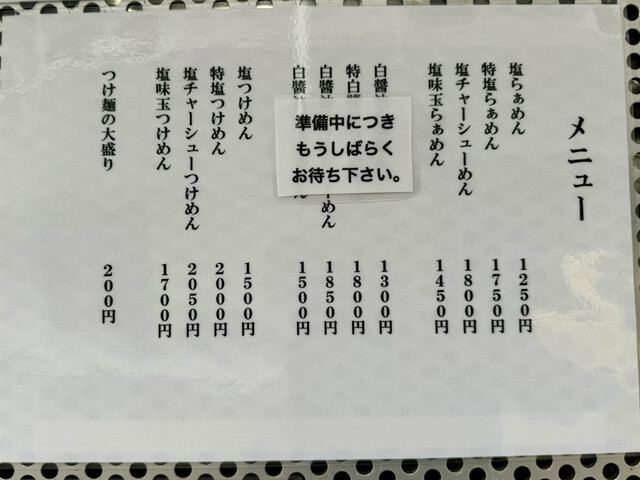 メニュー
塩らぁめん 1250円
特塩らぁめん 1750円
塩チャーシューめん 1800円
塩味玉らぁめん 1450円
白醤 1300円
特白 1800円
白醬 めん 1850円
白醬 ん 1500円
準備中につき
もうしばらく
お待ち下さい。
塩つけめん 1500円
特塩つけめん 2000円
塩チャーシューつけめん 2050円
塩味玉つけめん 1700円
つけ麺の大盛り 200円